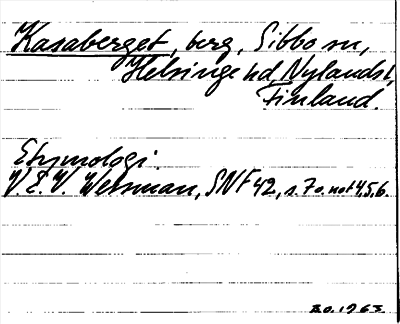 Kasaberget, berg, Sibbo sn,
Helsinge hd, Nylands l,
Finland.
Etymologi.
V. E. V. Wessman, SNF 42, s. 7 o. not 4,5,6.
1963